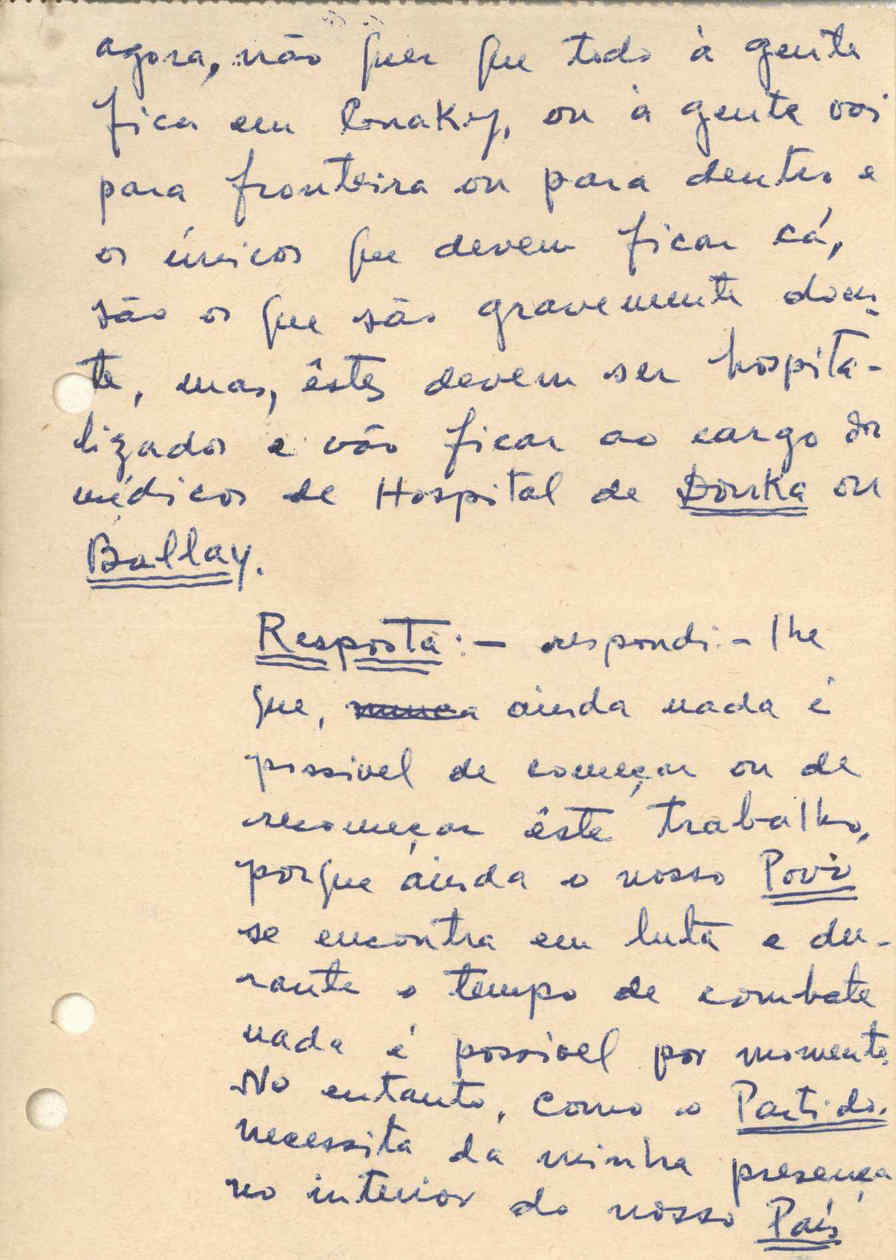 agora, não quer que todo à gente
fica em Conakry, ou à gente vai
para fronteira ou para dentro e
os únicos que devem ficar cá,
são os que são gravemente doen-
te, mas, êstes devem ser hospita-
lizados e vão ficar ao cargo dos
médicos de Hospital de Donka ou
Ballay.
Resposta:— respondi-lhe
que, nunca ainda nada é
possivel de começar ou de
recomeçar êste trabalho,
porque ainda o nosso Povo
se encontra em luta e du-
rante o tempo de combate
nada é possivel por momento.
No entanto, como o Partido.
necessita da minha presença
no interior do nosso País